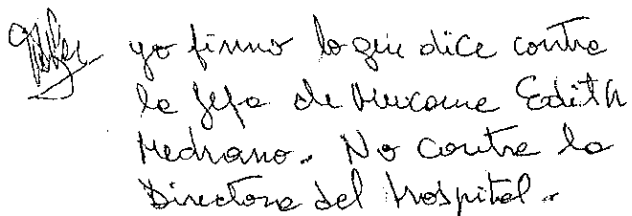 yo firmo lo que dice contra
la Jefa de Mucama Edith
Medrano. No contra la
Directora del Hospital.